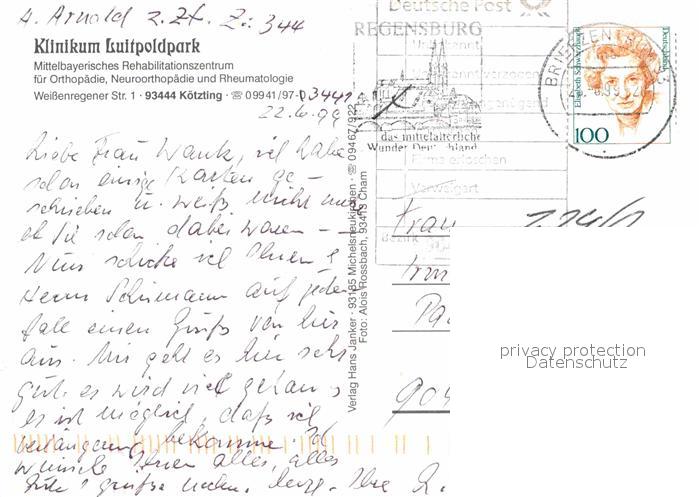 A. Arnold z. Zt. Zi 344
Klinikum Luitpoldpark
Mittelbayerisches Rehabilitationszentrum
für Orthopädie, Neuroorthopädie und Rheumatologie
Weißenregener Str. 1 · 93444 Kötzting · ☏ 09941/97-0
22.6.99
Liebe Frau Wank, ich habe
schon einige Karten ge-
schrieben u. weiß nicht mehr
ob Sie schon dabei waren -
Nun schicke ich Ihnen &
Herrn Schümann auf jeden
Fall einen Gruß von hier
aus. Mir geht es hier sehr
gut. es wird viel getan &
es ist möglich, daß ich
Verlängerung bekomme. Ich
wünsche Ihnen alles, alles
Gute & grüße
Ihre
Verlag Hans Janker · 93185 Michelsneukirchen · ☏ 09467/922
Foto: Alois Rossbach, 93413 Cham
Deutsche Post
REGENSBURG
das mittelalterliche
Wunder Deutschland
Unbekannt
Firma erloschen
Verweigert
Bezirk
BRIEFZENTRUM
Elisabeth Schwarzhaupt
Deutschland
100
Frau
904
privacy protection
Datenschutz